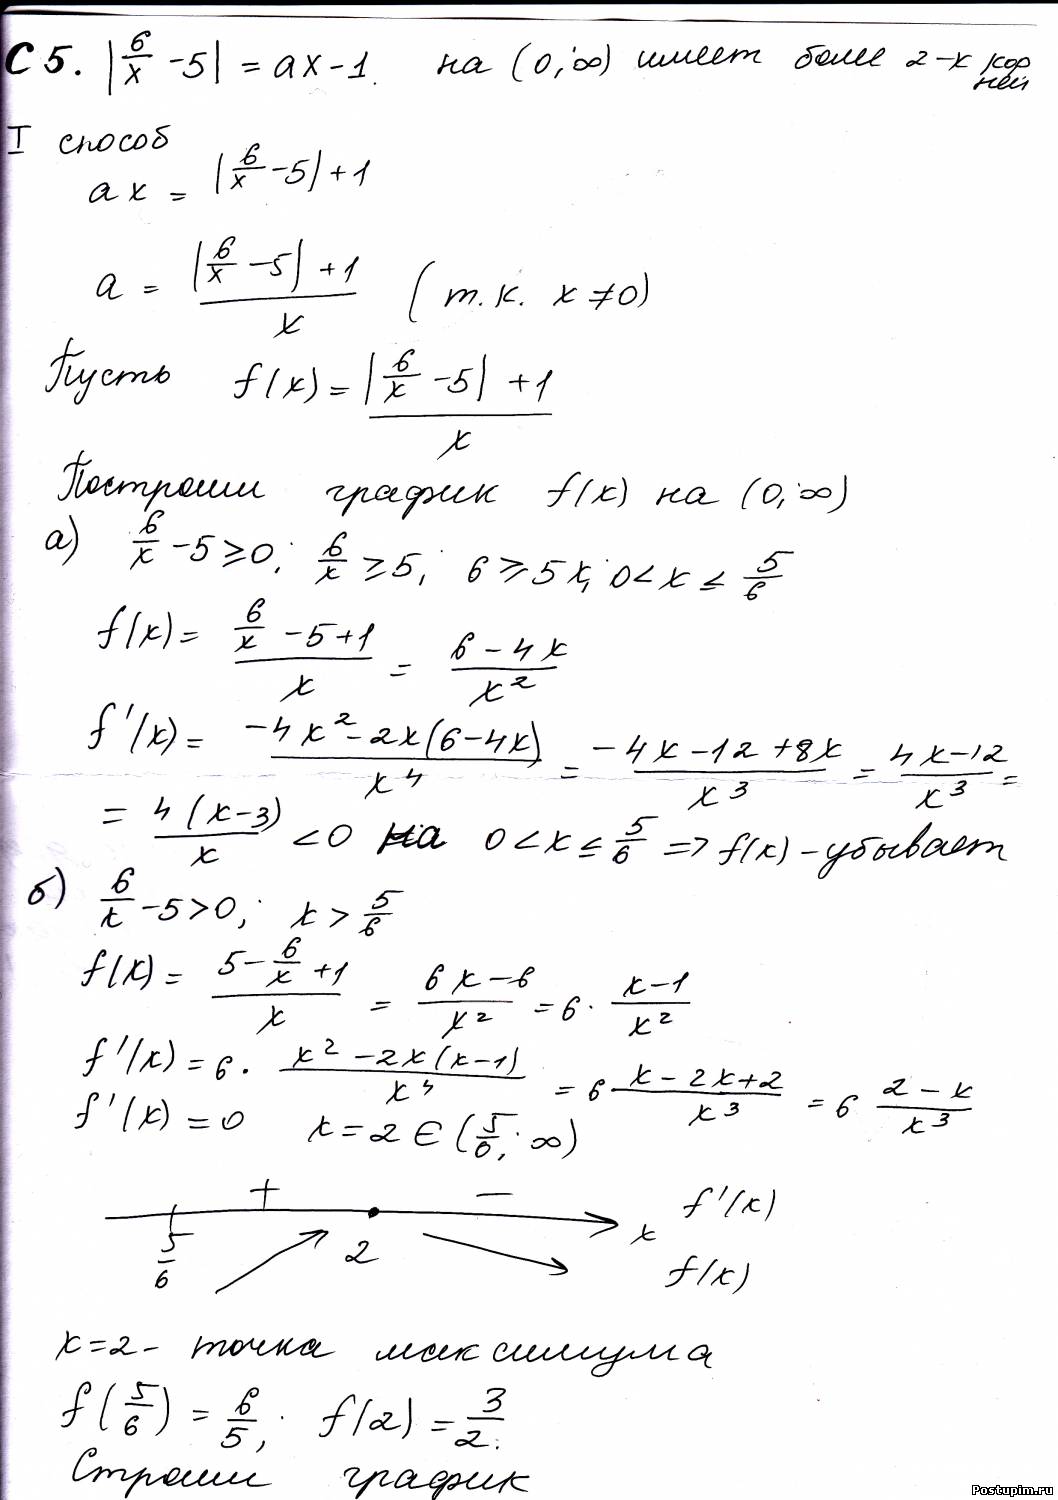 С 5. |6/x - 5| = ax - 1. на (0; ∞) имеет более 2-х корней
I способ
ax = |6/x - 5| + 1
a = (|6/x - 5| + 1)/x (т.к. x ≠ 0)
Пусть f(x) = (|6/x - 5| + 1)/x
Построим график f(x) на (0; ∞)
а) 6/x - 5 ≥ 0; 6/x ≥ 5; 6 ≥ 5x; 0 < x ≤ 5/6
f(x) = (6/x - 5 + 1)/x = (6 - 4x)/x²
f'(x) = (-4x² - 2x(6 - 4x))/x⁴ = (-4x - 12 + 8x)/x³ = (4x - 12)/x³ =
= 4(x - 3)/x < 0 на 0 < x ≤ 5/6 => f(x) - убывает
б) 6/x - 5 > 0; x > 5/6
f(x) = (5 - 6/x + 1)/x = (6x - 6)/x² = 6 · (x - 1)/x²
f'(x) = 6 · (x² - 2x(x - 1))/x⁴ = 6 (x - 2x + 2)/x³ = 6 (2 - x)/x³
f'(x) = 0 x = 2 ∈ (5/6; ∞)
+ − f'(x)
5/6 2 x
f(x)
x = 2 - точка максимума
f(5/6) = 6/5; f(2) = 3/2.
Строим график
Postupim.ru